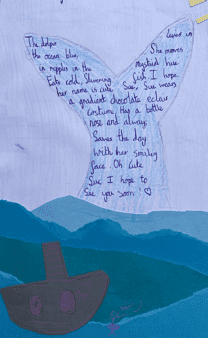 The dolphin lives in
the ocean blue, She moves
in ripples in the mystical hue.
Eats cold, slivering fish I hope.
her name is cute Sue, Sue wears
a gradient chocolate eclair
costume. Has a bottle
nose and always
Saves the day
With her smiley
face. Oh cute
Sue I hope to
See you soon!